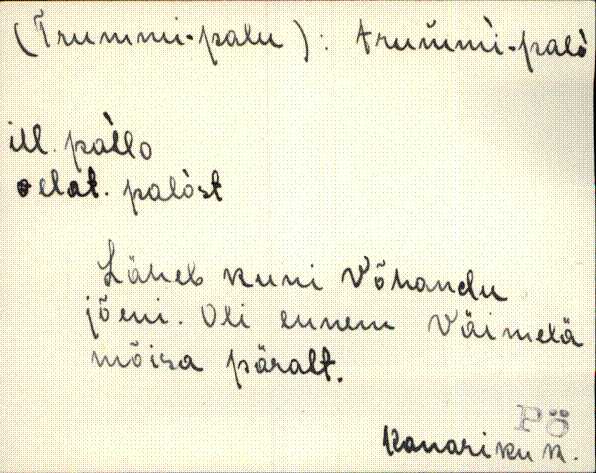 (Trummi-palu): trum̆mì-palò
ill. pàllo
elat. palòst
Läheb kuni Võhandu
jõeni. Oli ennem Väimelä
mõisa päralt.
Pö
Kanariku k.